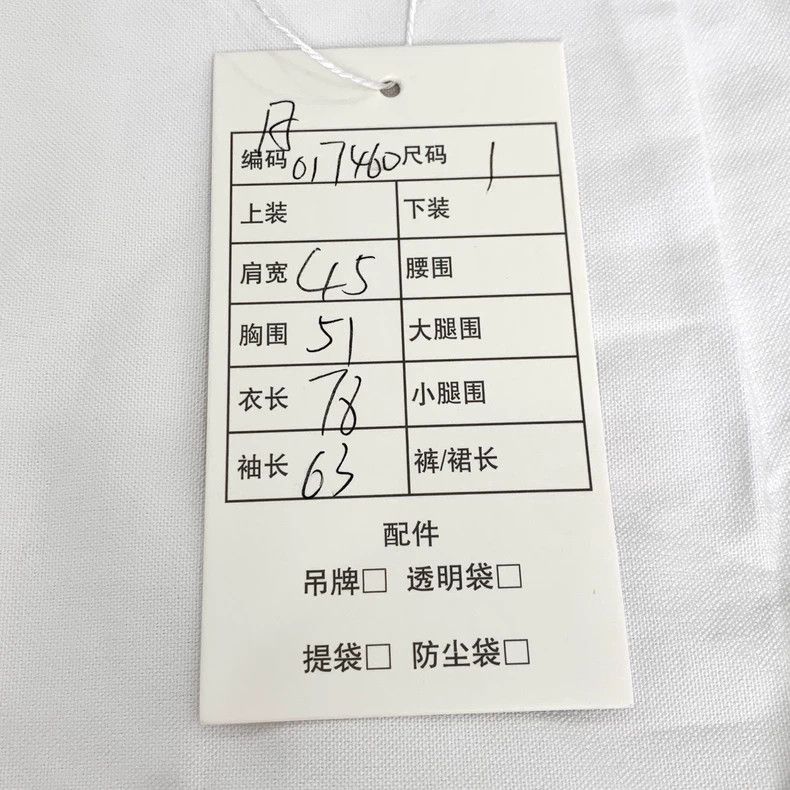 编码 017460 尺码 1
上装 下装
肩宽 45 腰围
胸围 51 大腿围
衣长 78 小腿围
袖长 63 裤/裙长
配件
吊牌□ 透明袋□
提袋□ 防尘袋□